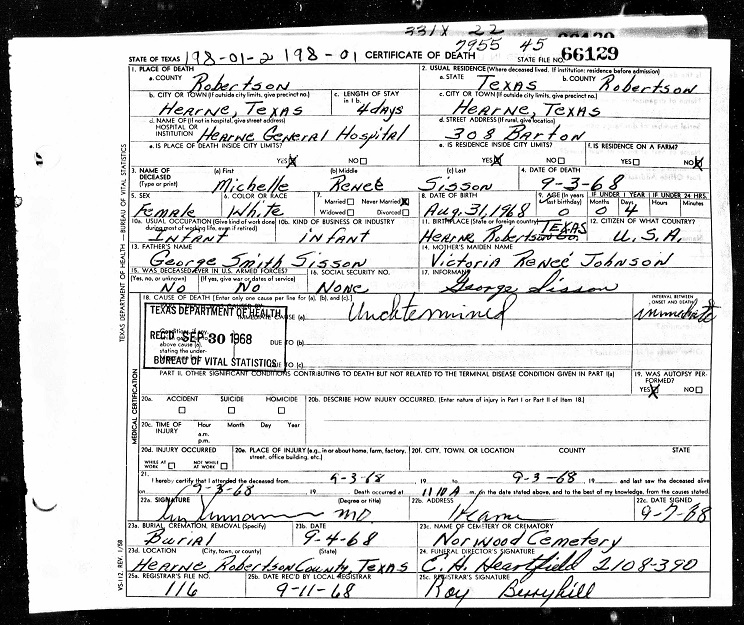 331X 22
7955 45
STATE OF TEXAS 198-01-2 198-01 CERTIFICATE OF DEATH STATE FILE NO. 66129
1. PLACE OF DEATH 2. USUAL RESIDENCE (Where deceased lived. If institution: residence before admission)
a. COUNTY Robertson a. STATE Texas b. COUNTY Robertson
b. CITY OR TOWN (If outside city limits, give precinct no.) c. LENGTH OF STAY in 1 b. c. CITY OR TOWN (If outside city limits, give precinct no.)
Hearne, Texas 4 days Hearne, Texas
d. NAME OF (If not in hospital, give street address) HOSPITAL OR INSTITUTION Hearne General Hospital d. STREET ADDRESS (If rural, give location) 308 Barton
e. IS PLACE OF DEATH INSIDE CITY LIMITS? e. IS RESIDENCE INSIDE CITY LIMITS? f. IS RESIDENCE ON A FARM?
YES NO YES NO YES NO
3. NAME OF DECEASED (Type or print) (a) First (b) Middle (c) Last 4. DATE OF DEATH
Michelle Reneé Sisson 9-3-68
5. SEX 6. COLOR OR RACE 7. Married Never Married Widowed Divorced 8. DATE OF BIRTH 9. AGE (In years last birthday) IF UNDER 1 YEAR Months Days IF UNDER 24 HRS. Hours Minutes
Female White Aug. 31, 1968 0 0 4
10a. USUAL OCCUPATION (Give kind of work done during most of working life, even if retired) 10b. KIND OF BUSINESS OR INDUSTRY 11. BIRTHPLACE (State or foreign country) 12. CITIZEN OF WHAT COUNTRY?
Infant infant Hearne Robertson Co. TEXAS U.S.A.
13. FATHER'S NAME 14. MOTHER'S MAIDEN NAME
George Smith Sisson Victoria Reneé Johnson
15. WAS DECEASED EVER IN U.S. ARMED FORCES? 16. SOCIAL SECURITY NO. 17. INFORMANT
(Yes, no, or unknown) (If yes, give war or dates of service)
No No None George Sisson
18. CAUSE OF DEATH [Enter only one cause per line for (a), (b), and (c).] INTERVAL BETWEEN ONSET AND DEATH
IMMEDIATE CAUSE (a) Undetermined immediate
TEXAS DEPARTMENT OF HEALTH
REC'D SEP 30 1968
BUREAU OF VITAL STATISTICS
above cause (a), stating the under-
DUE TO (b)
DUE TO (c)
PART II. OTHER SIGNIFICANT CONDITIONS CONTRIBUTING TO DEATH BUT NOT RELATED TO THE TERMINAL DISEASE CONDITION GIVEN IN PART I(a) 19. WAS AUTOPSY PERFORMED?
YES NO
20a. ACCIDENT SUICIDE HOMICIDE 20b. DESCRIBE HOW INJURY OCCURRED. (Enter nature of injury in Part I or Part II of item 18.)
20c. TIME OF INJURY Hour Month Day Year
a.m.
p.m.
20d. INJURY OCCURRED 20e. PLACE OF INJURY (e.g., in or about home, farm, factory, street, office building, etc.) 20f. CITY, TOWN, OR LOCATION COUNTY STATE
WHILE AT WORK NOT WHILE AT WORK
21. I hereby certify that I attended the deceased from 9-3-68, 19 to 9-3-68, 19 and last saw the deceased alive
on 9-3-68 19 Death occurred at 11 10 A m. on the date stated above, and to the best of my knowledge, from the causes stated.
22a. SIGNATURE (Degree or title) 22b. ADDRESS 22c. DATE SIGNED
MD Hearne 9-7-68
23a. BURIAL, CREMATION, REMOVAL (Specify) 23b. DATE 23c. NAME OF CEMETERY OR CREMATORY
Burial 9-4-68 Norwood Cemetery
23d. LOCATION (City, town, or county) (State) 24. FUNERAL DIRECTOR'S SIGNATURE
Hearne Robertson County, Texas C. H. Heartfield 2108-390
25a. REGISTRAR'S FILE NO. 25b. DATE REC'D BY LOCAL REGISTRAR 25c. REGISTRAR'S SIGNATURE
116 9-11-68 Roy Berryhill
TEXAS DEPARTMENT OF HEALTH — BUREAU OF VITAL STATISTICS
MEDICAL CERTIFICATION
VS-112, REV. 1/58